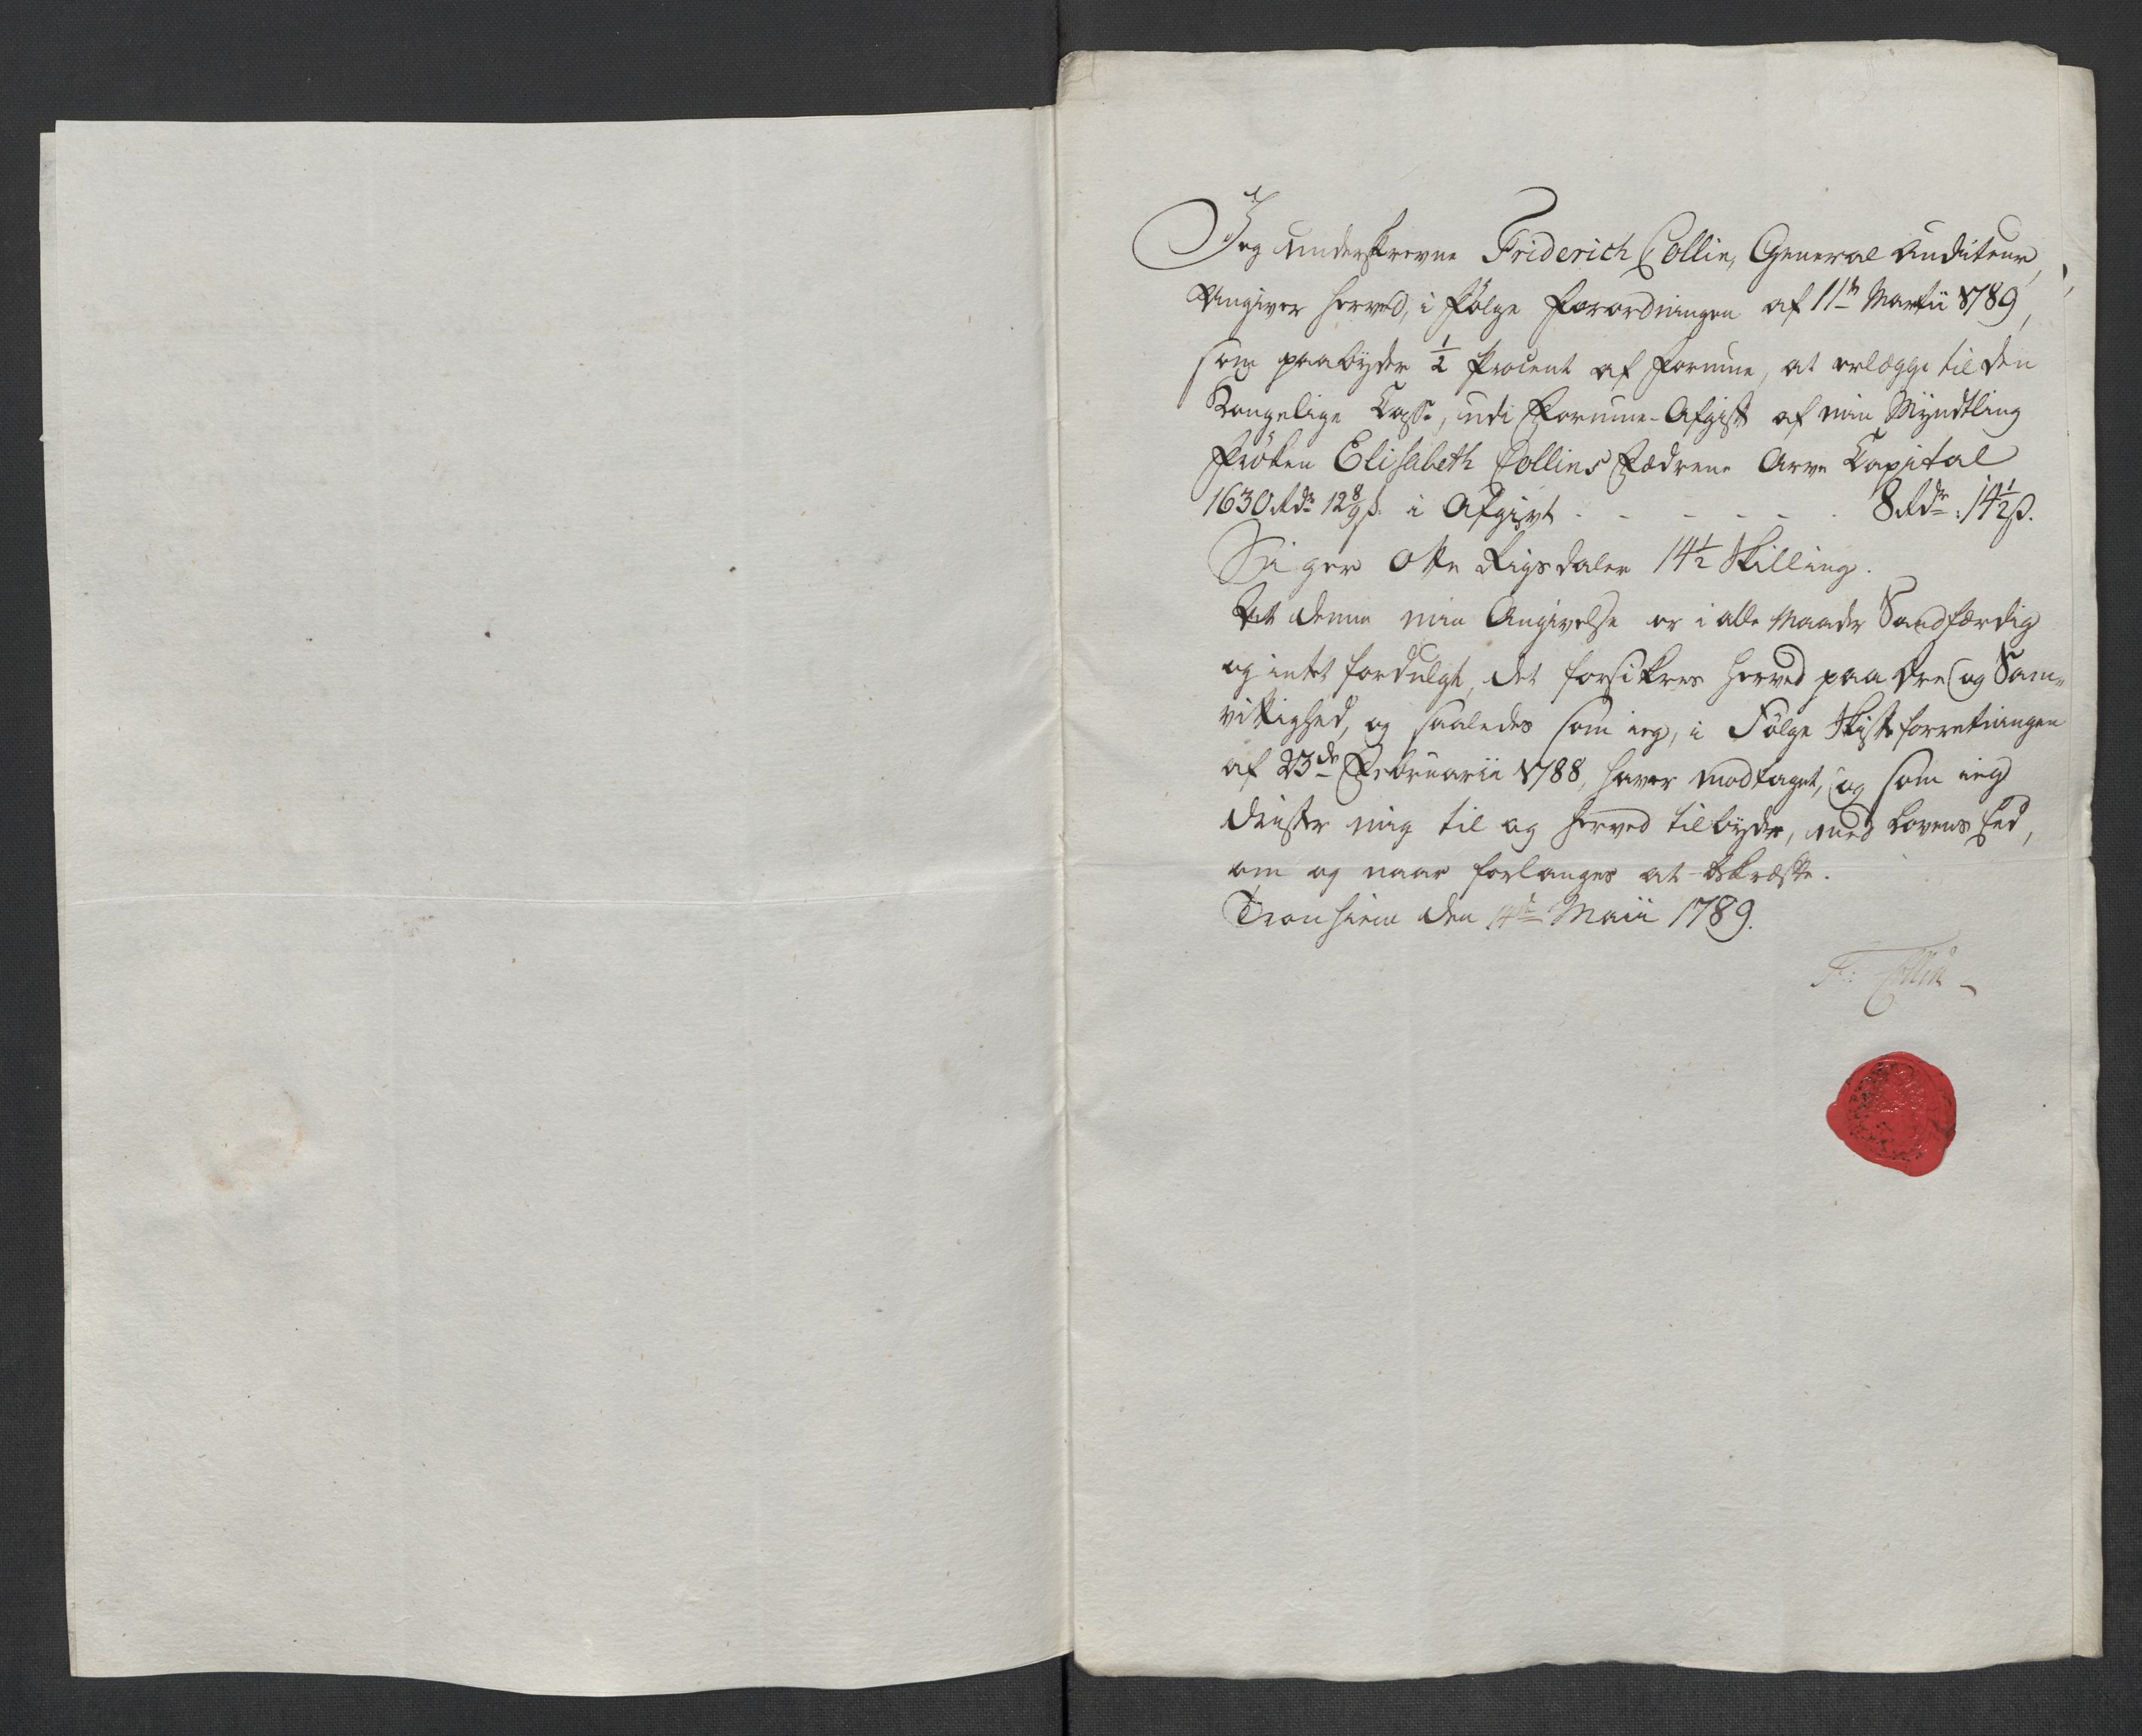 Jeg underskrevne Friderich Collin, General Auditeur,
Angiver herved, i Følge Forordningen af 11te Martii 1789,
som paabyder ½ Procent af Formue, at erlægge til den
Kongelige Casse, udi Formue-Afgift af min Myndtling
Frøken Elisabeth Collins Fædrene Arve Capital
1630 Rdr 12 8/9 s. i Afgivt - - - - - - 8 Rdr: 14½ s.
Siger Otte Rigsdaler 14½ Skilling.
At denne min Angivelse er i alle Maader Sandfærdig
og intet fordulgt, det forsikres herved paa Ære og Sam-
vittighed, og saaledes som ieg, i Følge Skifteforretningen
af 23de Februarii 1788, haver modtaget, og som ieg
drister mig til og herved tilbyder, med Lovens Eed,
om og naar forlanges at bekræfte.
Tronhiem den 14de Maii 1789.
F: Collin